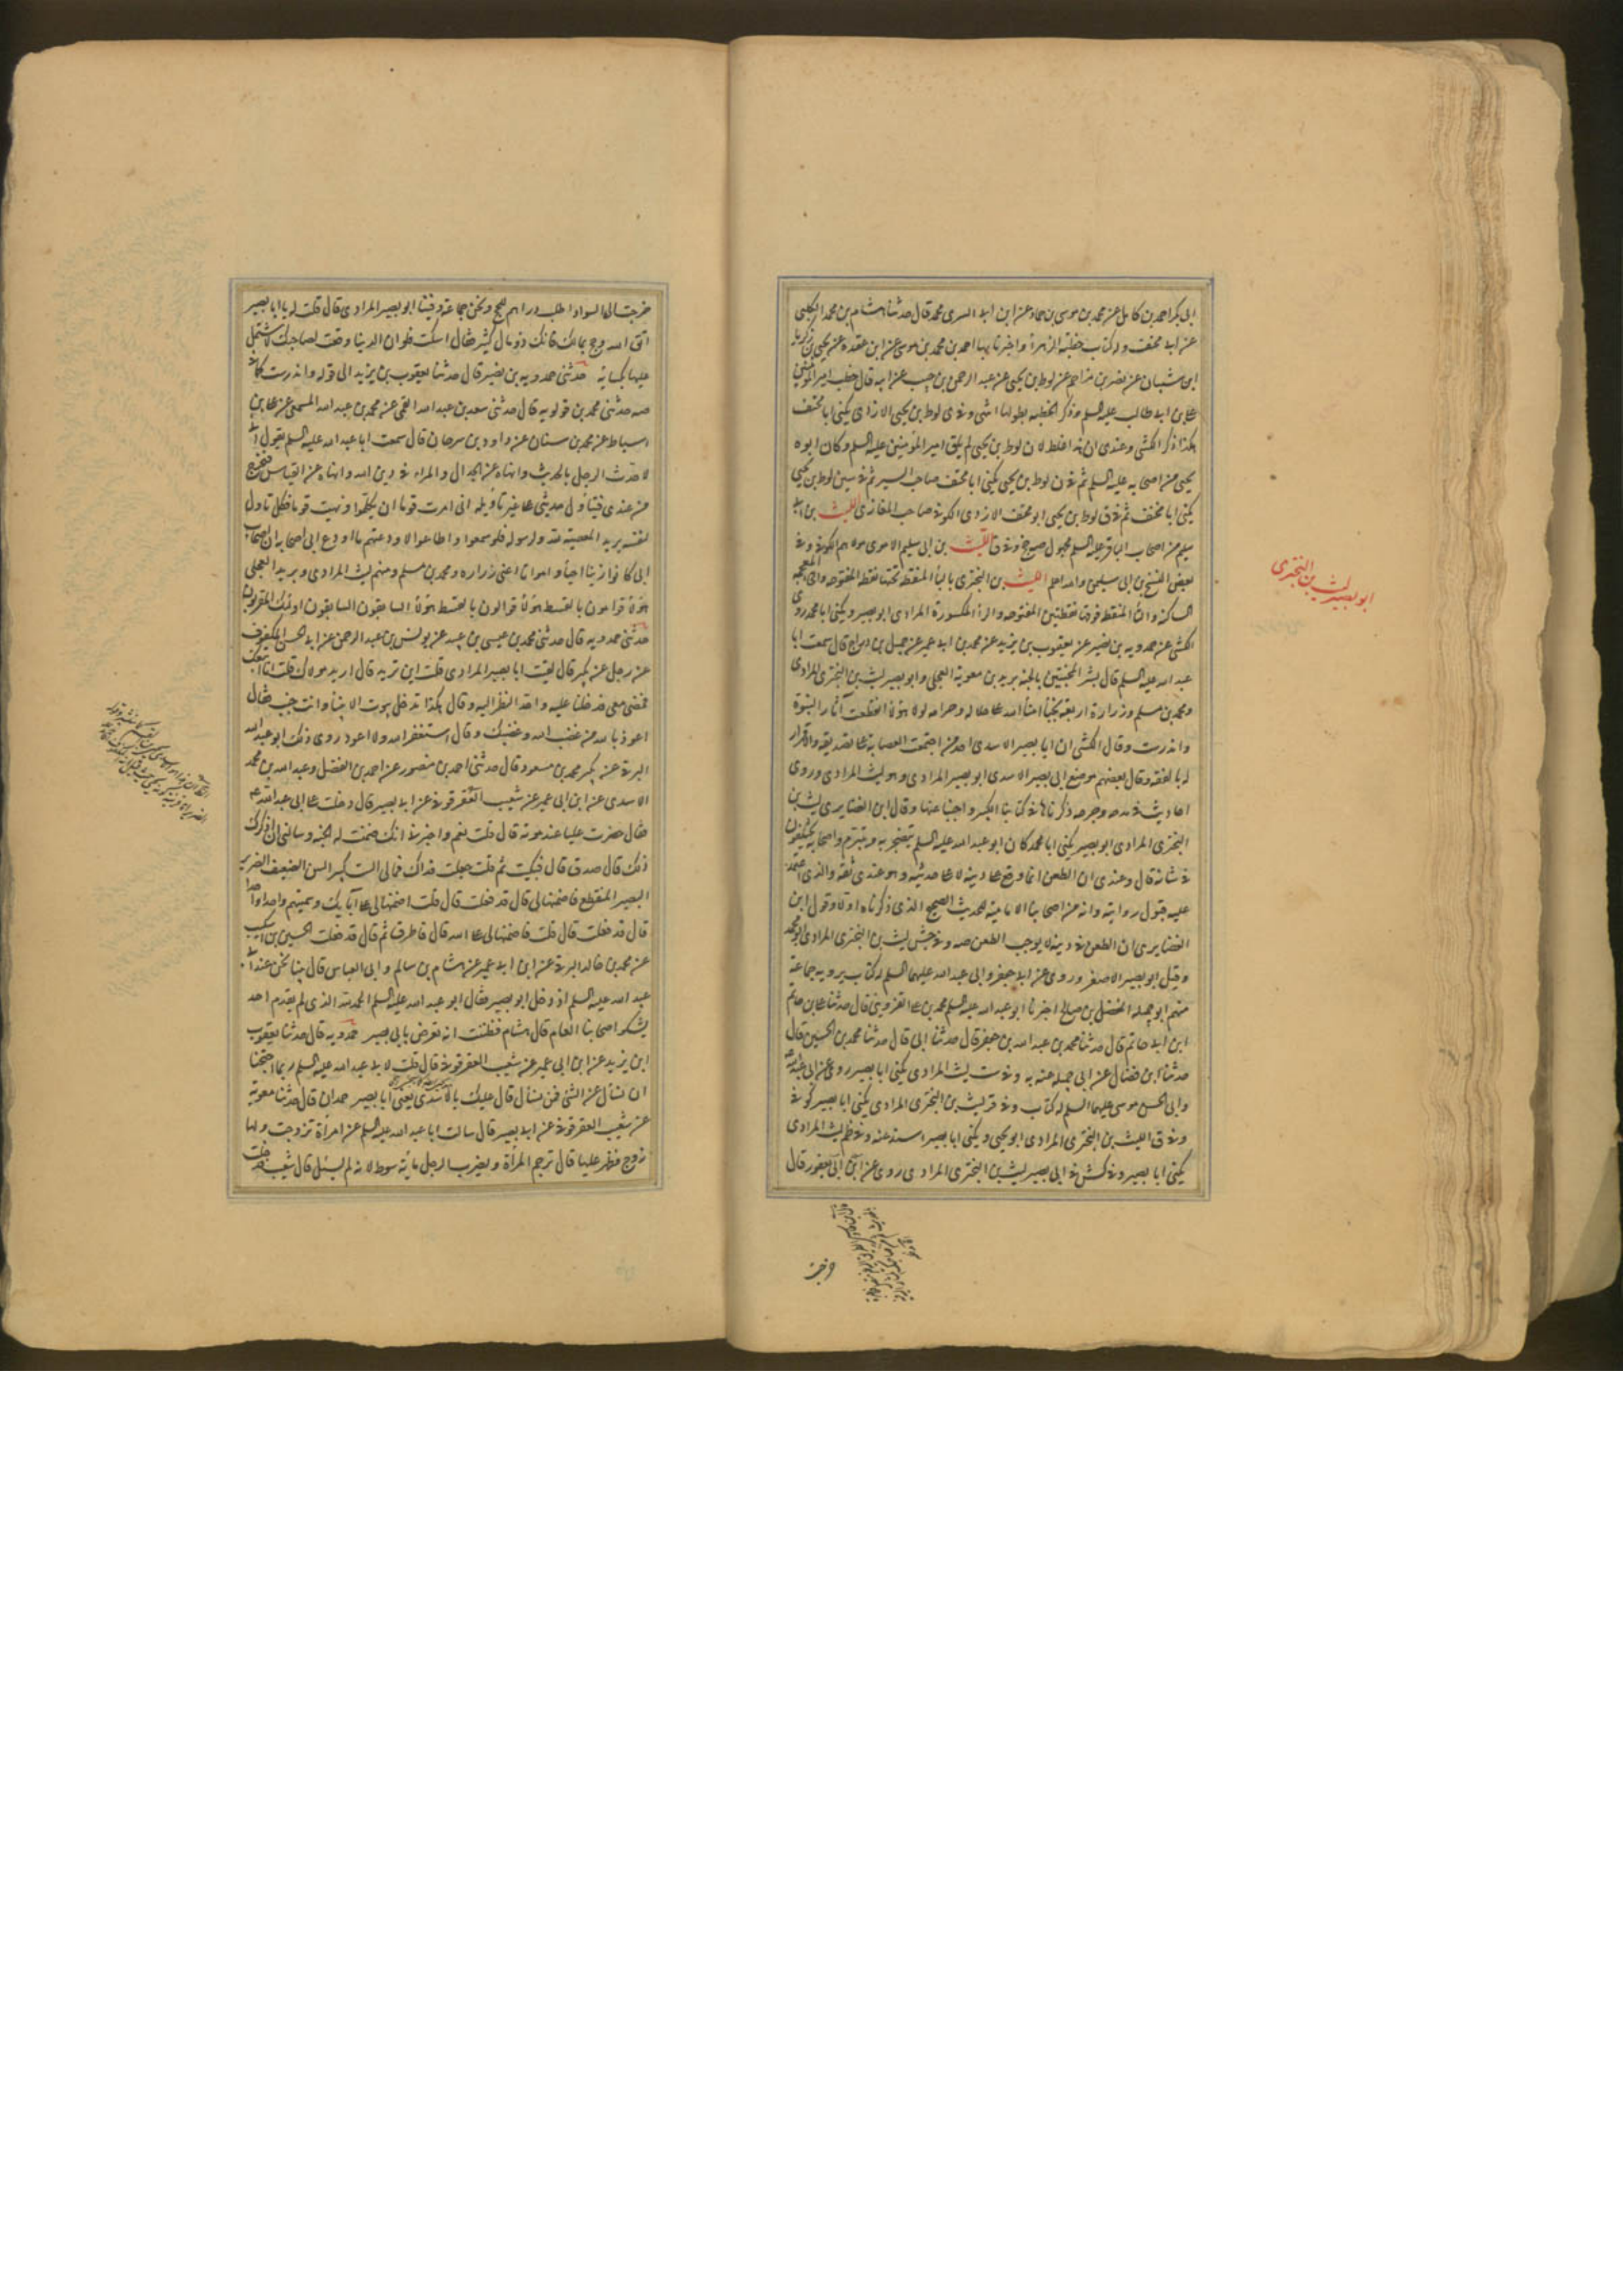 ابى بكر احمد بن كامل عن محمد بن موسى بن حماد عن ابن ابى السرى محمد قال حدثنا هشام بن محمد الكلبى
عن ابى مخنف وله كتاب خطبة الزهراء واخبرنا بها احمد بن محمد بن موسى عن ابن عقدة عن يحيى بن زكريا
ابن شيبان عن نصر بن مزاحم عن لوط بن يحيى عن عبد الرحمن بن جندب عن ابيه قال خطب امير المؤمنين
على بن ابى طالب عليه السلم وذكر الخطبة بطولها انتهى وفى ى لوط بن يحيى الازدى يكنى ابا مخنف
هكذا ذكر الكشى وعندى ان هذا غلط لان لوط بن يحيى لم يلق امير المؤمنين عليه السلم وكان ابوه
يحيى من اصحابه عليه السلم ثم فى ن لوط بن يحيى يكنى ابا مخنف صاحب السير ثم فى سين لوط بن يحيى
يكنى ابا مخنف ثم فى ق لوط بن يحيى ابو مخنف الازدى الكوفى صاحب المغازى الليث بن ابى
سليم من اصحاب الباقر عليه السلم مجهول صح وفى ق الليث بن ابى سليم الاموى مولاهم الكوفى وفى
بعض النسخ بن ابى سليمى والله اعلم الليث بن البخترى بالباء المنقطة تحتها نقطة المفتوحة والخاء المعجمة
الساكنة والتاء المنقطة فوقها نقطتين المفتوحة والراء المكسورة المرادى ابو بصير ويكنى ابا محمد روى
الكشى عن حمدويه بن نصير عن يعقوب بن يزيد عن محمد بن ابى عمير عن جميل بن دراج قال سمعت ابا
عبد الله عليه السلم قال بشر المخبتين بالجنة بريد بن معوية العجلى وابو بصير ليث بن البخترى المرادى
ومحمد بن مسلم وزرارة اربعة نجباء امناء الله على حلاله وحرامه لولا هؤلاء انقطعت آثار النبوة
واندرست وقال الكشى ان ابا بصير الاسدى احد من اجتمعت العصابة على تصديقه والاقرار
له بالفقه وقال بعضهم موضع ابى بصير الاسدى ابو بصير المرادى وهو ليث المرادى وروى
احاديث فى مدحه وجرحه ذكرناها فى كتابنا الكبير واجبنا عنها وقال ابن الغضايرى ليث بن
البخترى المرادى ابو بصير يكنى ابا محمد كان ابو عبد الله عليه السلم يتضجر به ويتبرم واصحابه يختلفون
فى شانه قال وعندى ان الطعن انما وقع على دينه لا على حديثه وهو عندى ثقة والذى اعتمد
عليه قبول روايته وانه عن اصحابنا الامامية للحديث الصحيح الذى ذكرناه اولا وقول ابن
الغضايرى ان الطعن فى دينه لا يوجب الطعن صه وفى جش ليث بن البخترى المرادى ابو محمد
وقيل ابو بصير الاصغر روى عن ابى جعفر وابى عبد الله عليهما السلم له كتاب يرويه جماعة
منهم ابو جميلة المفضل بن صالح اخبرنا ابو عبد الله محمد بن على القزوينى قال حدثنا على بن حاتم
ابن ابى حاتم قال حدثنا محمد بن عبد الله بن جعفر قال حدثنا ابى قال حدثنا محمد بن الحسين قال
حدثنا ابن فضال عن ابى جميلة عنه به وفى ست ليث المرادى يكنى ابا بصير روى عن ابى عبد الله
وابى الحسن موسى عليهما السلم له كتاب وفى قر ليث بن البخترى المرادى يكنى ابا بصير كوفى
وفى ق الليث بن البخترى المرادى ابو يحيى ويكنى ابا بصير اسند عنه وفى ظم ليث المرادى
يكنى ابا بصير وفى كش فى ابى بصير ليث بن البخترى المرادى روى عن ابن ابى يعفور قال
ابو بصير ليث بن البخترى
خرجت
خرجت الى السواد اطلب دراهم لنحج ونحن جماعة وفينا ابو بصير المرادى قال قلت له يا ابا بصير
اتق الله وحج بمالك فانك ذو مال كثير فقال اسكت فلو ان الدنيا وقعت لصاحبك لاشتمل
عليها بكسائه حدثنى حمدويه بن نصير قال حدثنا يعقوب بن يزيد الى قوله واندرست كما فى
صه حدثنى محمد بن قولويه قال حدثنى سعد بن عبد الله القمى عن محمد بن عبد الله المسمعى عن على بن
اسباط عن محمد بن سنان عن داود بن سرحان قال سمعت ابا عبد الله عليه السلم يقول انى
لاحدث الرجل بالحديث وانهاه عن الجدال والمراء فى دين الله وانهاه عن القياس فيخرج
من عندى فيتاول حديثى على غير تاويله انى امرت قوما ان يتكلموا ونهيت قوما فكل تاول
لنفسه يريد المعصية لله ولرسوله فلو سمعوا واطاعوا لاودعتهم ما اودع ابى اصحابه ان اصحاب
ابى كانوا زينا احياء وامواتا اعنى زراره ومحمد بن مسلم ومنهم ليث المرادى وبريد العجلى
هؤلاء قوامون بالقسط هؤلاء قوالون بالقسط هؤلاء السابقون السابقون اولئك المقربون
حدثنى حمدويه قال حدثنى محمد بن عيسى بن عبيد عن يونس بن عبد الرحمن عن ابى الحسن المكفوف
عن رجل عن بكير قال لقيت ابا بصير المرادى قلت اين تريد قال اريد مولاك قلت انا اتبعك
فمضى معى فدخلنا عليه واحد النظر اليه وقال هكذا تدخل بيوت الانبياء وانت جنب فقال
اعوذ بالله من غضب الله وغضبك وقال استغفر الله ولا اعود روى ذلك ابو عبد الله
البرقى عن بكير محمد بن مسعود قال حدثنى احمد بن منصور عن احمد بن الفضل وعبد الله بن محمد
الاسدى عن ابن ابى عمير عن شعيب العقرقوفى عن ابى بصير قال دخلت على ابى عبد الله ع
فقال حضرت علباء عند موته قال قلت نعم واخبرنى انك ضمنت له الجنة وسالنى ان اذكرك
ذلك قال صدق قال فبكيت ثم قلت جعلت فداك فمالى الست كبير السن الضعيف الضرير
البصير المنقطع فاضمنها لى قال قد فعلت قال قلت اضمنها لى على آبائك وسميتهم واحدا واحدا
قال قد فعلت قال قلت فاضمنها لى على الله قال فاطرق ثم قال قد فعلت الحسين بن اشكيب
عن محمد بن خالد البرقى عن ابن ابى عمير عن هشام بن سالم وابى العباس قال بينا نحن عند ابى
عبد الله عليه السلم اذ دخل ابو بصير فقال ابو عبد الله عليه السلم الحمد لله الذى لم يقدم احد
يشكو اصحابنا العام قال هشام فظننت انه تعرض بابى بصير حمدويه قال حدثنا يعقوب
ابن يزيد عن ابن ابى عمير عن شعيب العقرقوفى قال قلت لابى عبد الله عليه السلم ربما احتجنا
ان نسأل عن الشئ فمن نسأل قال عليك بالاسدى يعنى ابا بصير حمدان قال حدثنا معوية
عن شعيب العقرقوفى عن ابى بصير قال سالت ابا عبد الله عليه السلم عن امرأة تزوجت ولها
زوج فظهر عليها قال ترجم المرأة ويضرب الرجل مائة سوط لانه لم يسئل قال شعيب فدخلت